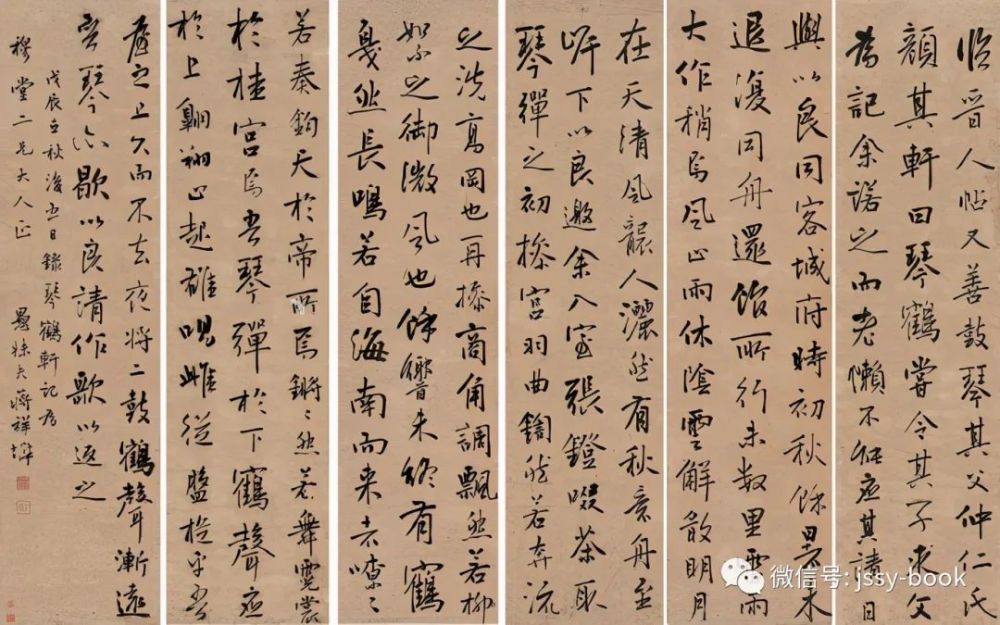 临晋人帖又善鼓琴其父仲仁氏
顔其軒曰琴鶴嘗令其子求文
為記余諾之而老懶不能应其請日
與以良同客城府時初秋餘暑未
退復同舟還館所行未数里雲雨
大作稍焉風止雨休陰雲解散明月
在天清風襲人灑然有秋意舟至
岍下以良邀余入室張鐙啜茶取
琴彈之初操宮羽曲鏘然若奔流
之洗高岡也再操商角調飄然若柳
絮之御微風也餘響未終有鶴
戛然長鳴若自海南而来者嘹〻
若奏鈞天於帝所焉鏘〻然若舞霓裳
於桂宮焉吾琴彈於下鶴聲应
於上翺翔起雄唱雌從盤旋乎吾
廬之上久而不去夜将二鼓鶴聲漸遠
吾琴亦歇以良請作歌以返之
戊辰立秋後五日錄琴鶴軒記為
穆堂二兄大人正
愚妹夫蔣祥墀
微信号: jssy-book